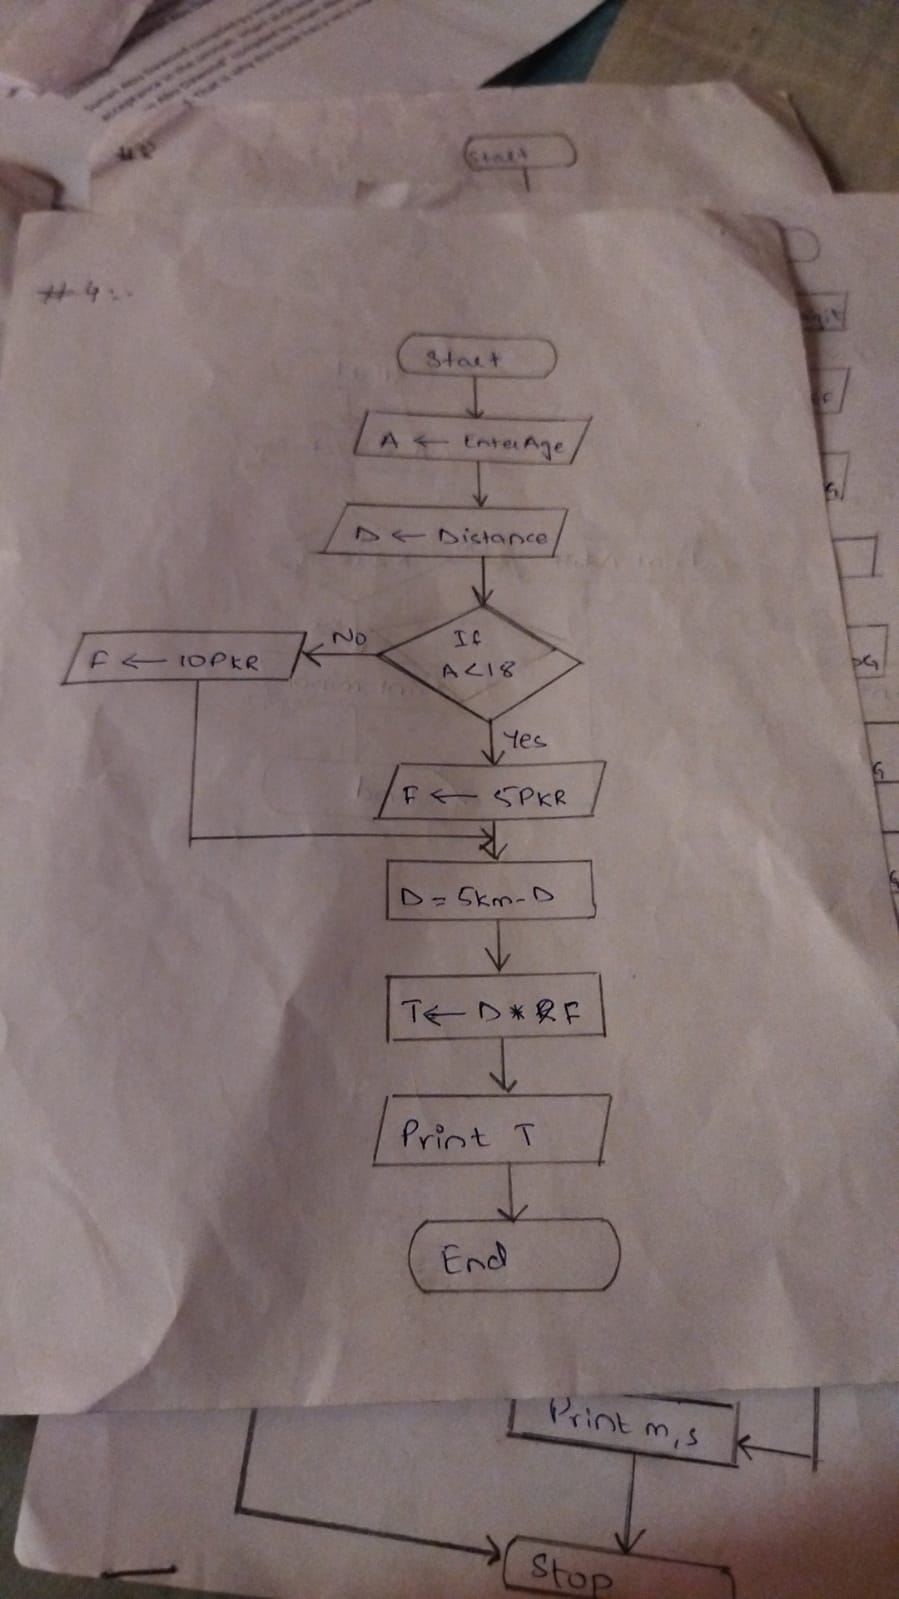 Start
# 4:-
Start
A ← Enter Age
D ← Distance
If
A<18
No
F ← 10PKR
Yes
F ← 5PKR
D = 5km - D
T ← D * F
Print T
End
Print m,s
Stop